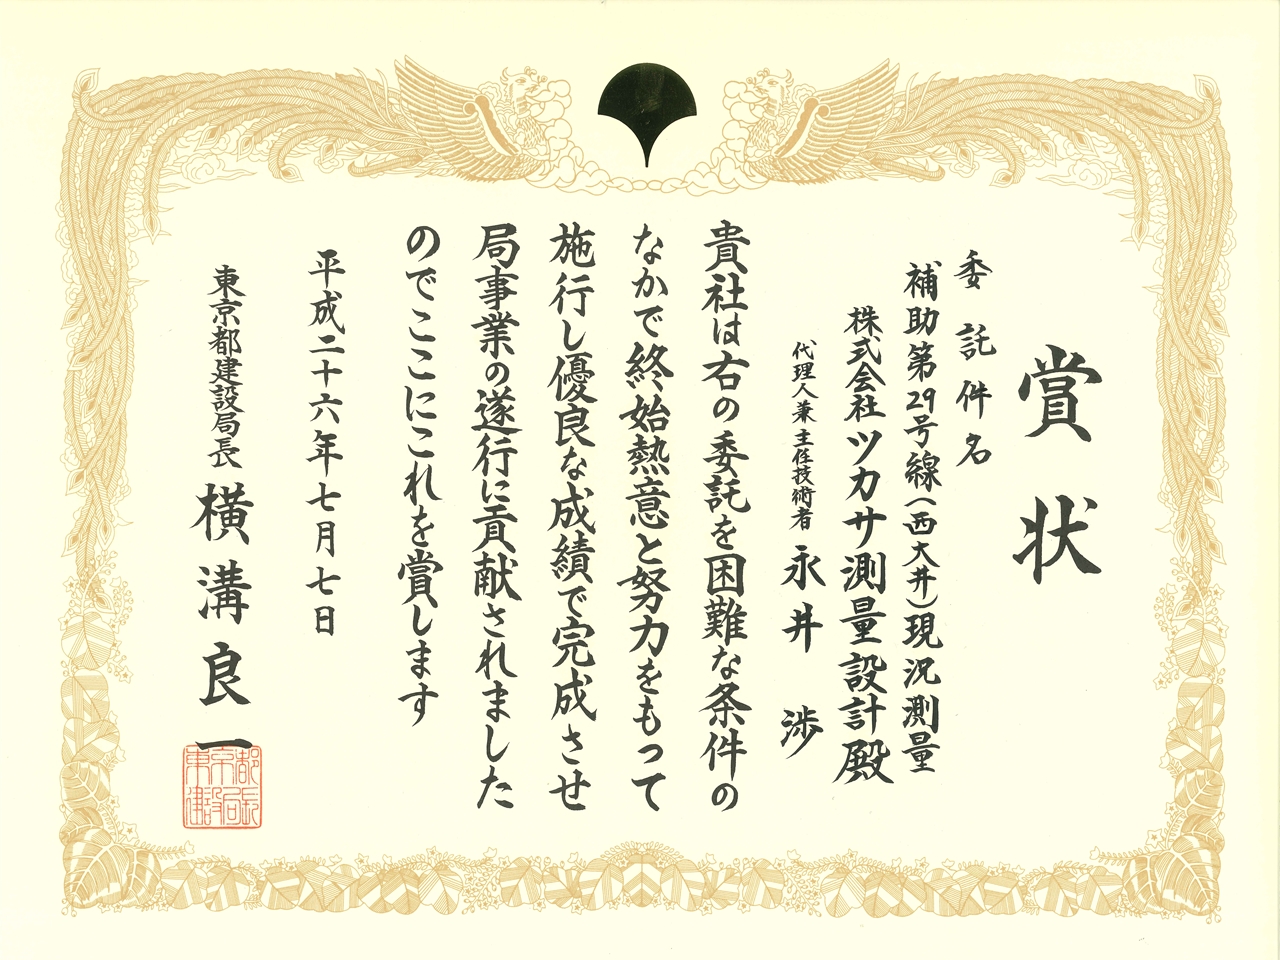 賞状
委託件名
補助第29号線(西大井)現況測量
株式会社ツカサ測量設計殿
代理人兼主任技術者 永井 渉
貴社は右の委託を困難な条件の
なかで終始熱意と努力をもって
施行し優良な成績で完成させ
局事業の遂行に貢献されました
のでここにこれを賞します
平成二十六年七月七日
東京都建設局長 横溝良一
東京都
建設局長